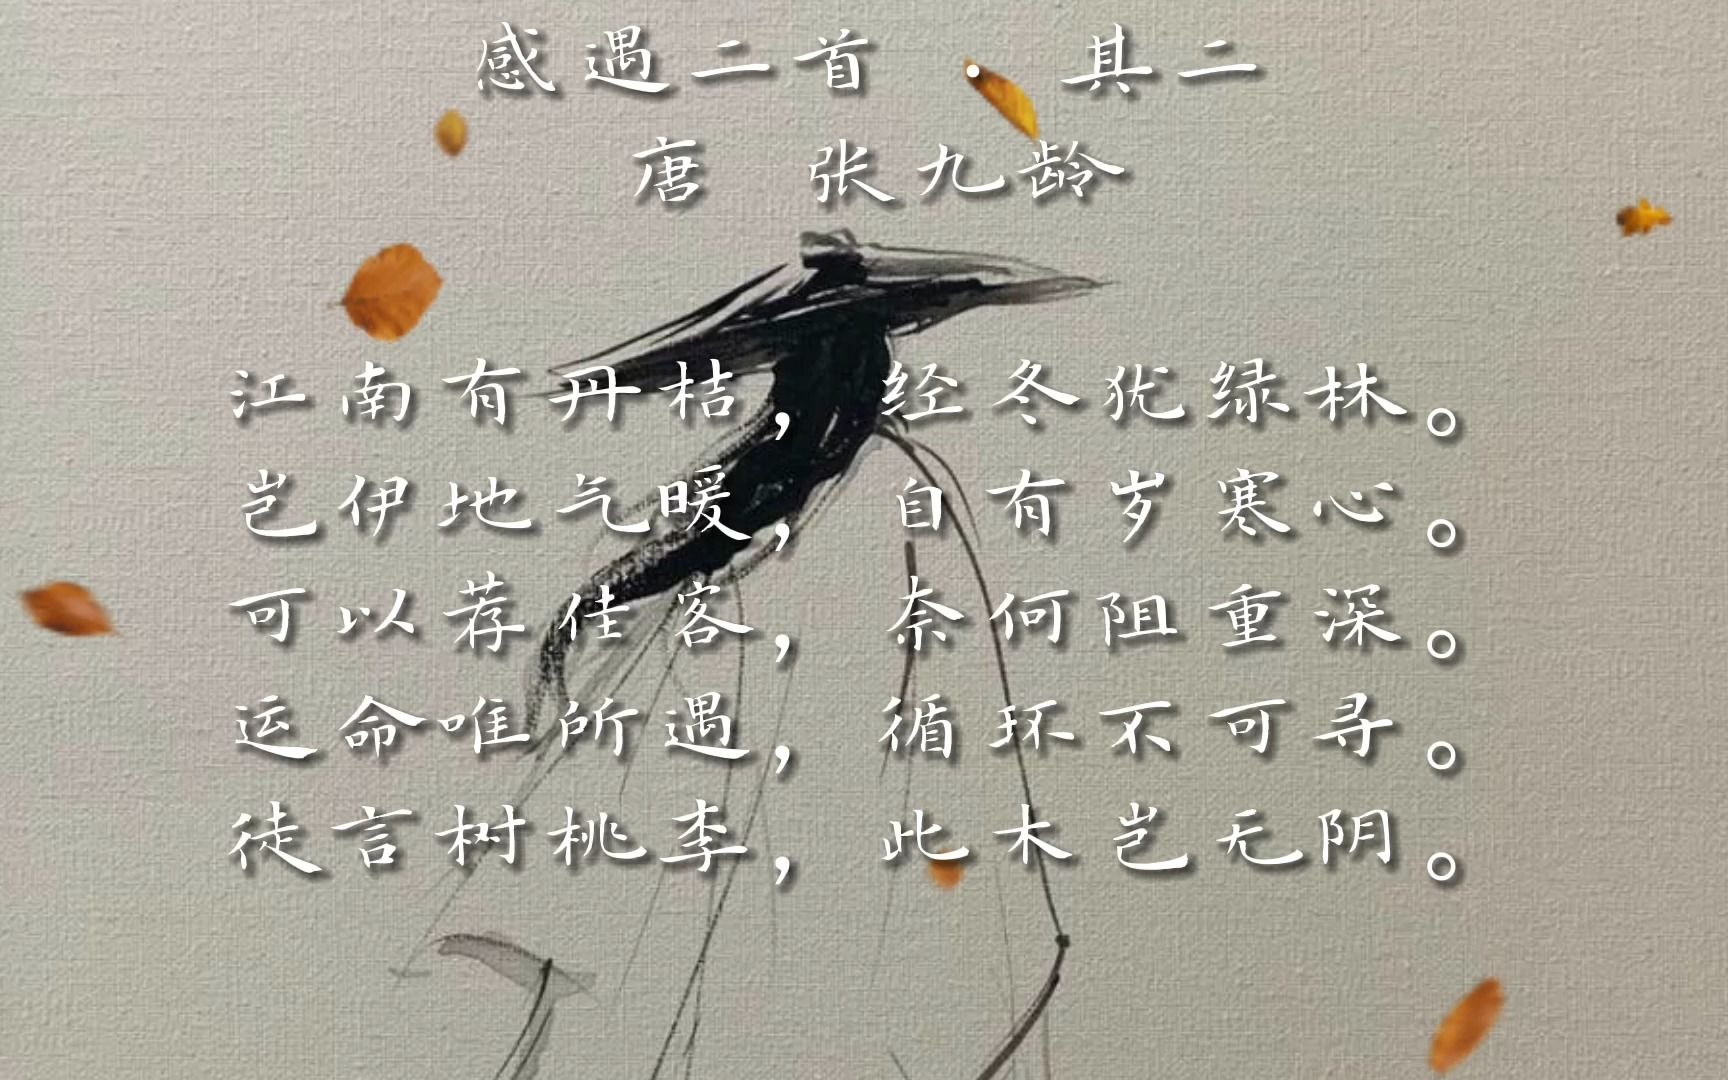 感遇二首·其二
唐 张九龄
江南有丹桔，经冬犹绿林。
岂伊地气暖，自有岁寒心。
可以荐佳客，奈何阻重深。
运命唯所遇，循环不可寻。
徒言树桃李，此木岂无阴。